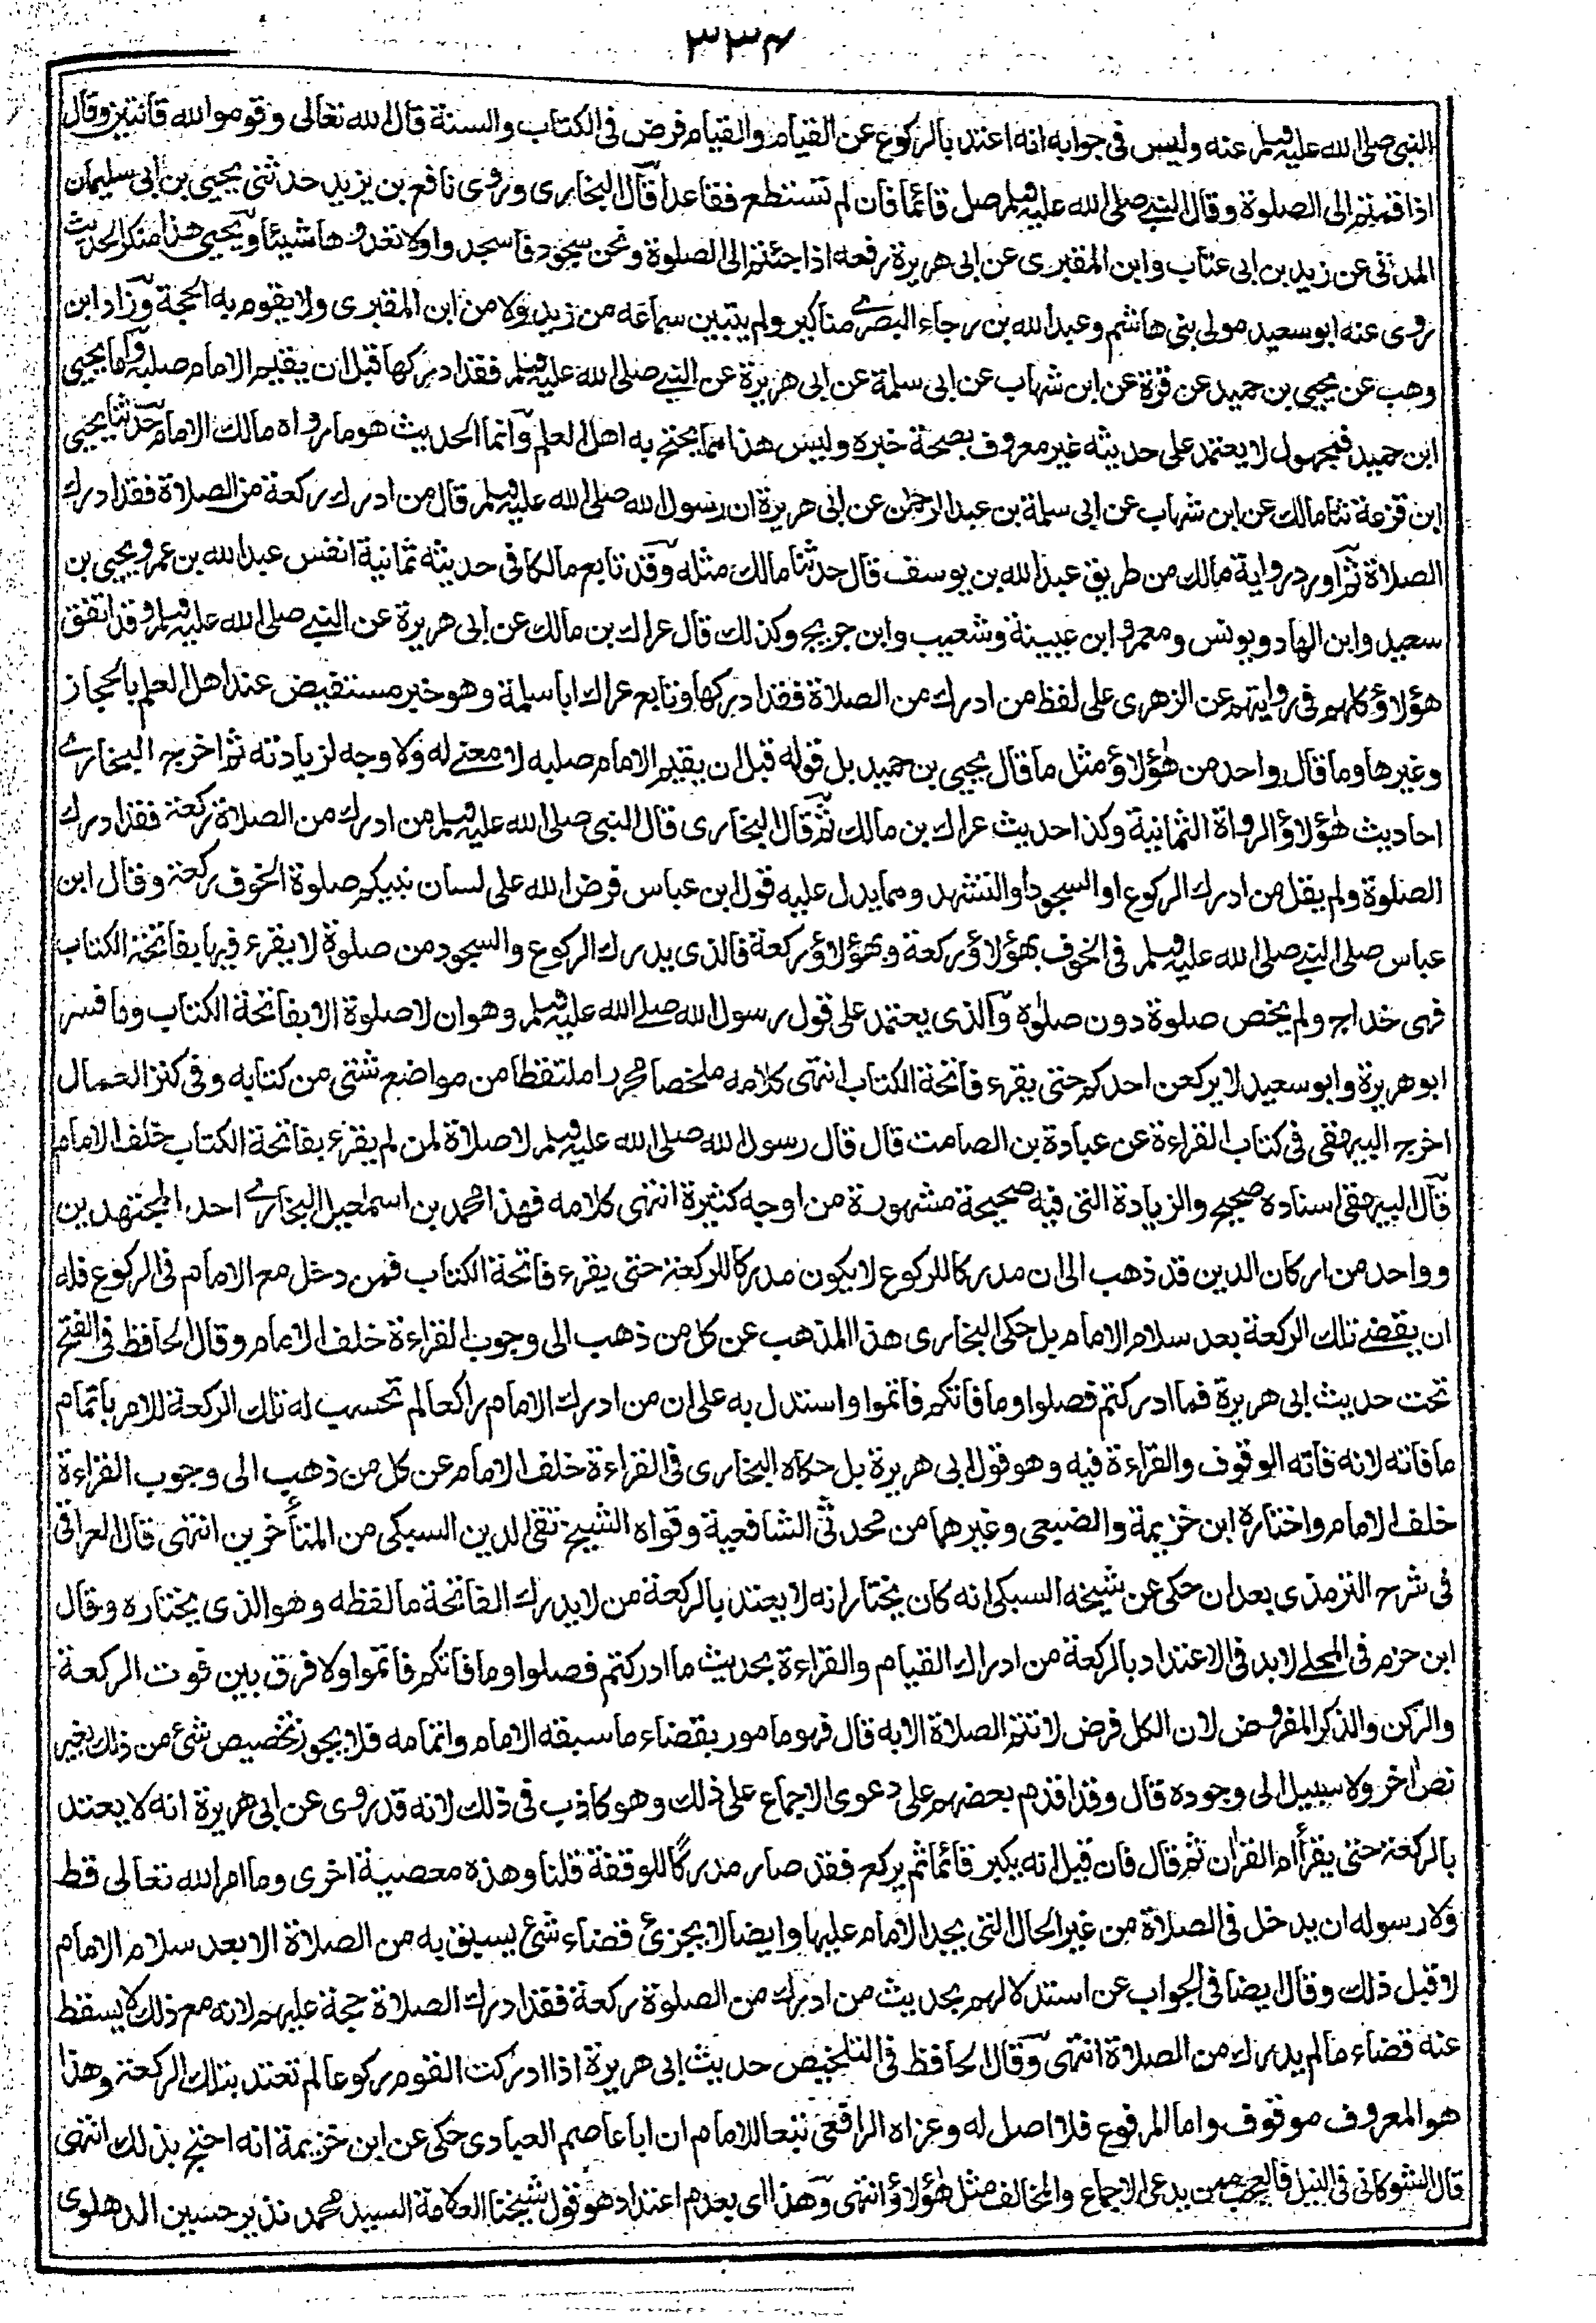 ٣٣٤
النبي صلى الله عليه وسلم عنه وليس في جوابه انه اعتد بالركوع عن القيام والقيام فرض في الكتاب والسنة قال الله تعالى وقوموا لله قانتين وقال
اذا قمتم الى الصلوة وقال النبي صلى الله عليه وسلم صل قائما فان لم تستطع فقاعدا قال البخاري وروى نافع بن يزيد حدثني يحيى بن ابي سليمان
المدني عن زيد بن ابي عتاب وابن المقبري عن ابي هريرة رفعه اذا جئتم الى الصلوة ونحن سجود فاسجدوا ولا تعدوها شيئا ويحيى هذا منكر الحديث
روى عنه ابو سعيد مولى بني هاشم وعبد الله بن رجاء البصري مناكير ولم يتبين سماعه من زيد ولا من ابن المقبري ولا يقوم به الحجة وزاد ابن
وهب عن يحيى بن حميد عن قرة عن ابن شهاب عن ابي سلمة عن ابي هريرة عن النبي صلى الله عليه وسلم فقد ادركها قبل ان يقيم الامام صلبه واما يحيى
ابن حميد فمجهول لا يعتمد على حديثه غير معروف بصحة خبره وليس هذا مما يحتج به اهل العلم وانما الحديث هو ما رواه مالك الامام حدثنا يحيى
ابن قزعة ثنا مالك عن ابن شهاب عن ابي سلمة بن عبد الرحمن عن ابي هريرة ان رسول الله صلى الله عليه وسلم قال من ادرك ركعة من الصلاة فقد ادرك
الصلاة ثم اورد رواية مالك من طريق عبد الله بن يوسف قال حدثنا مالك مثله وقد تابع مالكا في حديثه ثمانية انفس عبد الله بن عمر ويحيى بن
سعيد وابن الهاد ويونس ومعمر وابن عيينة وشعيب وابن جريج وكذلك قال عراك بن مالك عن ابي هريرة عن النبي صلى الله عليه وسلم وقد اتفق
هؤلاؤ كلهم في روايتهم عن الزهري على لفظ من ادرك من الصلاة فقد ادركها وتابع عراك ابا سلمة وهو خبر مستفيض عند اهل العلم بالحجاز
وغيرها وما قال واحد من هؤلاؤ مثل ما قال يحيى بن حميد بل قوله قبل ان يقيم الامام صلبه لا معنى له ولا وجه لزيادته ثم اخرج البخاري
احاديث هؤلاؤ الرواة الثمانية وكذا حديث عراك بن مالك ثم قال البخاري قال النبي صلى الله عليه وسلم من ادرك من الصلاة ركعة فقد ادرك
الصلوة ولم يقل من ادرك الركوع او السجود او التشهد ومما يدل عليه قول ابن عباس فرض الله على لسان نبيكم صلوة الخوف ركعة وقال ابن
عباس صلى النبي صلى الله عليه وسلم في الخوف بهؤلاؤ ركعة وبهؤلاؤ ركعة فالذي يدرك الركوع والسجود من صلوة لا يقرء فيها بفاتحة الكتاب
فهى خداج ولم يخص صلوة دون صلوة والذي يعتمد على قول رسول الله صلى الله عليه وسلم وهو ان لا صلوة الا بفاتحة الكتاب وما فسر
ابو هريرة وابو سعيد لا يركعن احدكم حتى يقرء فاتحة الكتاب انتهى كلامه ملخصا محررا ملتقطا من مواضع شتى من كتابه وفي كنز العمال
اخرج البيهقي في كتاب القراءة عن عبادة بن الصامت قال قال رسول الله صلى الله عليه وسلم لا صلاة لمن لم يقرء بفاتحة الكتاب خلف الامام
قال البيهقي اسناده صحيح والزيادة التي فيه صحيحة مشهورة من اوجه كثيرة انتهى كلامه فهذا محمد بن اسمعيل البخاري احد المجتهدين
وواحد من اركان الدين قد ذهب الى ان مدركا للركوع لا يكون مدركا للركعة حتى يقرء فاتحة الكتاب فمن دخل مع الامام في الركوع فله
ان يقضي تلك الركعة بعد سلام الامام بل حكى البخاري هذا المذهب عن كل من ذهب الى وجوب القراءة خلف الامام وقال الحافظ في الفتح
تحت حديث ابي هريرة فما ادركتم فصلوا وما فاتكم فاتموا واستدل به على ان من ادرك الامام راكعا لم تحسب له تلك الركعة للامر باتمام
ما فاته لانه فاته الوقوف والقراءة فيه وهو قول ابي هريرة بل حكاه البخاري في القراءة خلف الامام عن كل من ذهب الى وجوب القراءة
خلف الامام واختاره ابن خزيمة والضبعي وغيرهما من محدثي الشافعية وقواه الشيخ تقي الدين السبكي من المتأخرين انتهى قال العراقي
في شرح الترمذي بعد ان حكى عن شيخه السبكي انه كان يختار انه لا يعتد بالركعة من لا يدرك الفاتحة ما لفظه وهو الذي يختاره وقال
ابن حزم في المحلى لا بد في الاعتداد بالركعة من ادراك القيام والقراءة بحديث ما ادركتم فصلوا وما فاتكم فاتموا ولا فرق بين فوت الركعة
والركن والذكر المفروض لان الكل فرض لا تتم الصلاة الا به قال فهو مامور بقضاء ما سبقه الامام واتمامه فلا يجوز تخصيص شئ من ذلك بغير
نص اخر ولا سبيل الى وجوده قال وقد اقدم بعضهم على دعوى الاجماع على ذلك وهو كاذب في ذلك لانه قد روى عن ابي هريرة انه لا يعتد
بالركعة حتى يقرأ ام القران ثم قال فان قيل انه يكبر قائما ثم يركع فقد صار مدركا للوقفة قلنا وهذه معصية اخرى وما امر الله تعالى قط
ولا رسوله ان يدخل في الصلاة من غير الحال التي يجد الامام عليها وايضا لا يجزئ قضاء شئ يسبق به من الصلاة الا بعد سلام الامام
لا قبل ذلك وقال ايضا في الجواب عن استدلالهم بحديث من ادرك من الصلوة ركعة فقد ادرك الصلاة حجة عليهم لانه مع ذلك لا يسقط
عنه قضاء ما لم يدرك من الصلاة انتهى وقال الحافظ في التلخيص حديث ابي هريرة اذا ادركت القوم ركوعا لم تعتد بتلك الركعة وهذا
هو المعروف موقوف واما المرفوع فلا اصل له وعزاه الرافعي تبعا للامام ان ابا عاصم العبادي حكى عن ابن خزيمة انه احتج بذلك انتهى
قال الشوكاني في النيل فالعجب ممن يدعى الاجماع والمخالف مثل هؤلاؤ انتهى وهذا اي بعدم اعتداد هو قول شيخنا العلامة السيد محمد نذير حسين الدهلوى